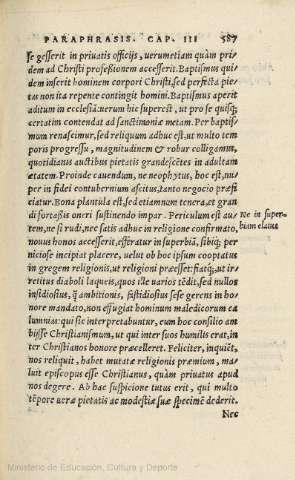 PARAPHRASIS. CAP. III 587
se gesserit in priuatis officijs, uerumetiam quàm pri/
dem ad Christi professionem accesserit. Baptismus qui/
dem inserit hominem corpori Christi, sed perfecta pie/
tas non ita repente contingit homini. Baptismus aperit
aditum in ecclesiã: uerum hic superest, ut pro se quisq;
certatim contendat ad sanctimoniæ metam. Per baptis/
mum renascimur, sed reliquum adhuc est, ut multo tem
poris progressu, magnitudinem & robur colligamus,
quotidianis auctibus pietatis grandescẽtes in adultam
ætatem. Proinde cauendum, ne neophytus, hoc est, nu/
per in fidei contubernium ascitus, tanto negocio præfi
ciatur. Bona plantula est, sed etiamnum tenera, et gran
di sortaßis oneri sustinendo impar. Periculum est au/
tem, ne si rudi, nec satis adhuc in religione confirmato,
nouus honos accesserit, efferatur in superbiã, sibiq; per
niciose incipiat placere, uelut ob hoc ipsum cooptatus
in gregem religionis, ut religioni præesset: fiatq́; ut ir/
retitus diaboli laqueis, quos ille uarios tẽdit, sed nullos
insidiosius, q̃ ambitionis, fastidiosius sese gerens in ho/
nore mandato, non effugiat hominum maledicorum ca
lumniã: qui sic interpretabuntur, eum hoc consilio am
bisse Christianismum, ut qui inter suos humilis erat, in
ter Christianos honore præcelleret. Feliciter, inquiẽt,
nos reliquit, habet mutatæ religionis præmium, ma/
luit episcopus esse Christianus, quàm priuatus apud
nos degere. Ab hac suspicione tutus erit, qui multo
tẽpore ueræ pietatis ac modestiæ suæ specimẽ dederit.
Nec
Ne in super/
biam elatus
Ministerio de Educación, Cultura y Deporte